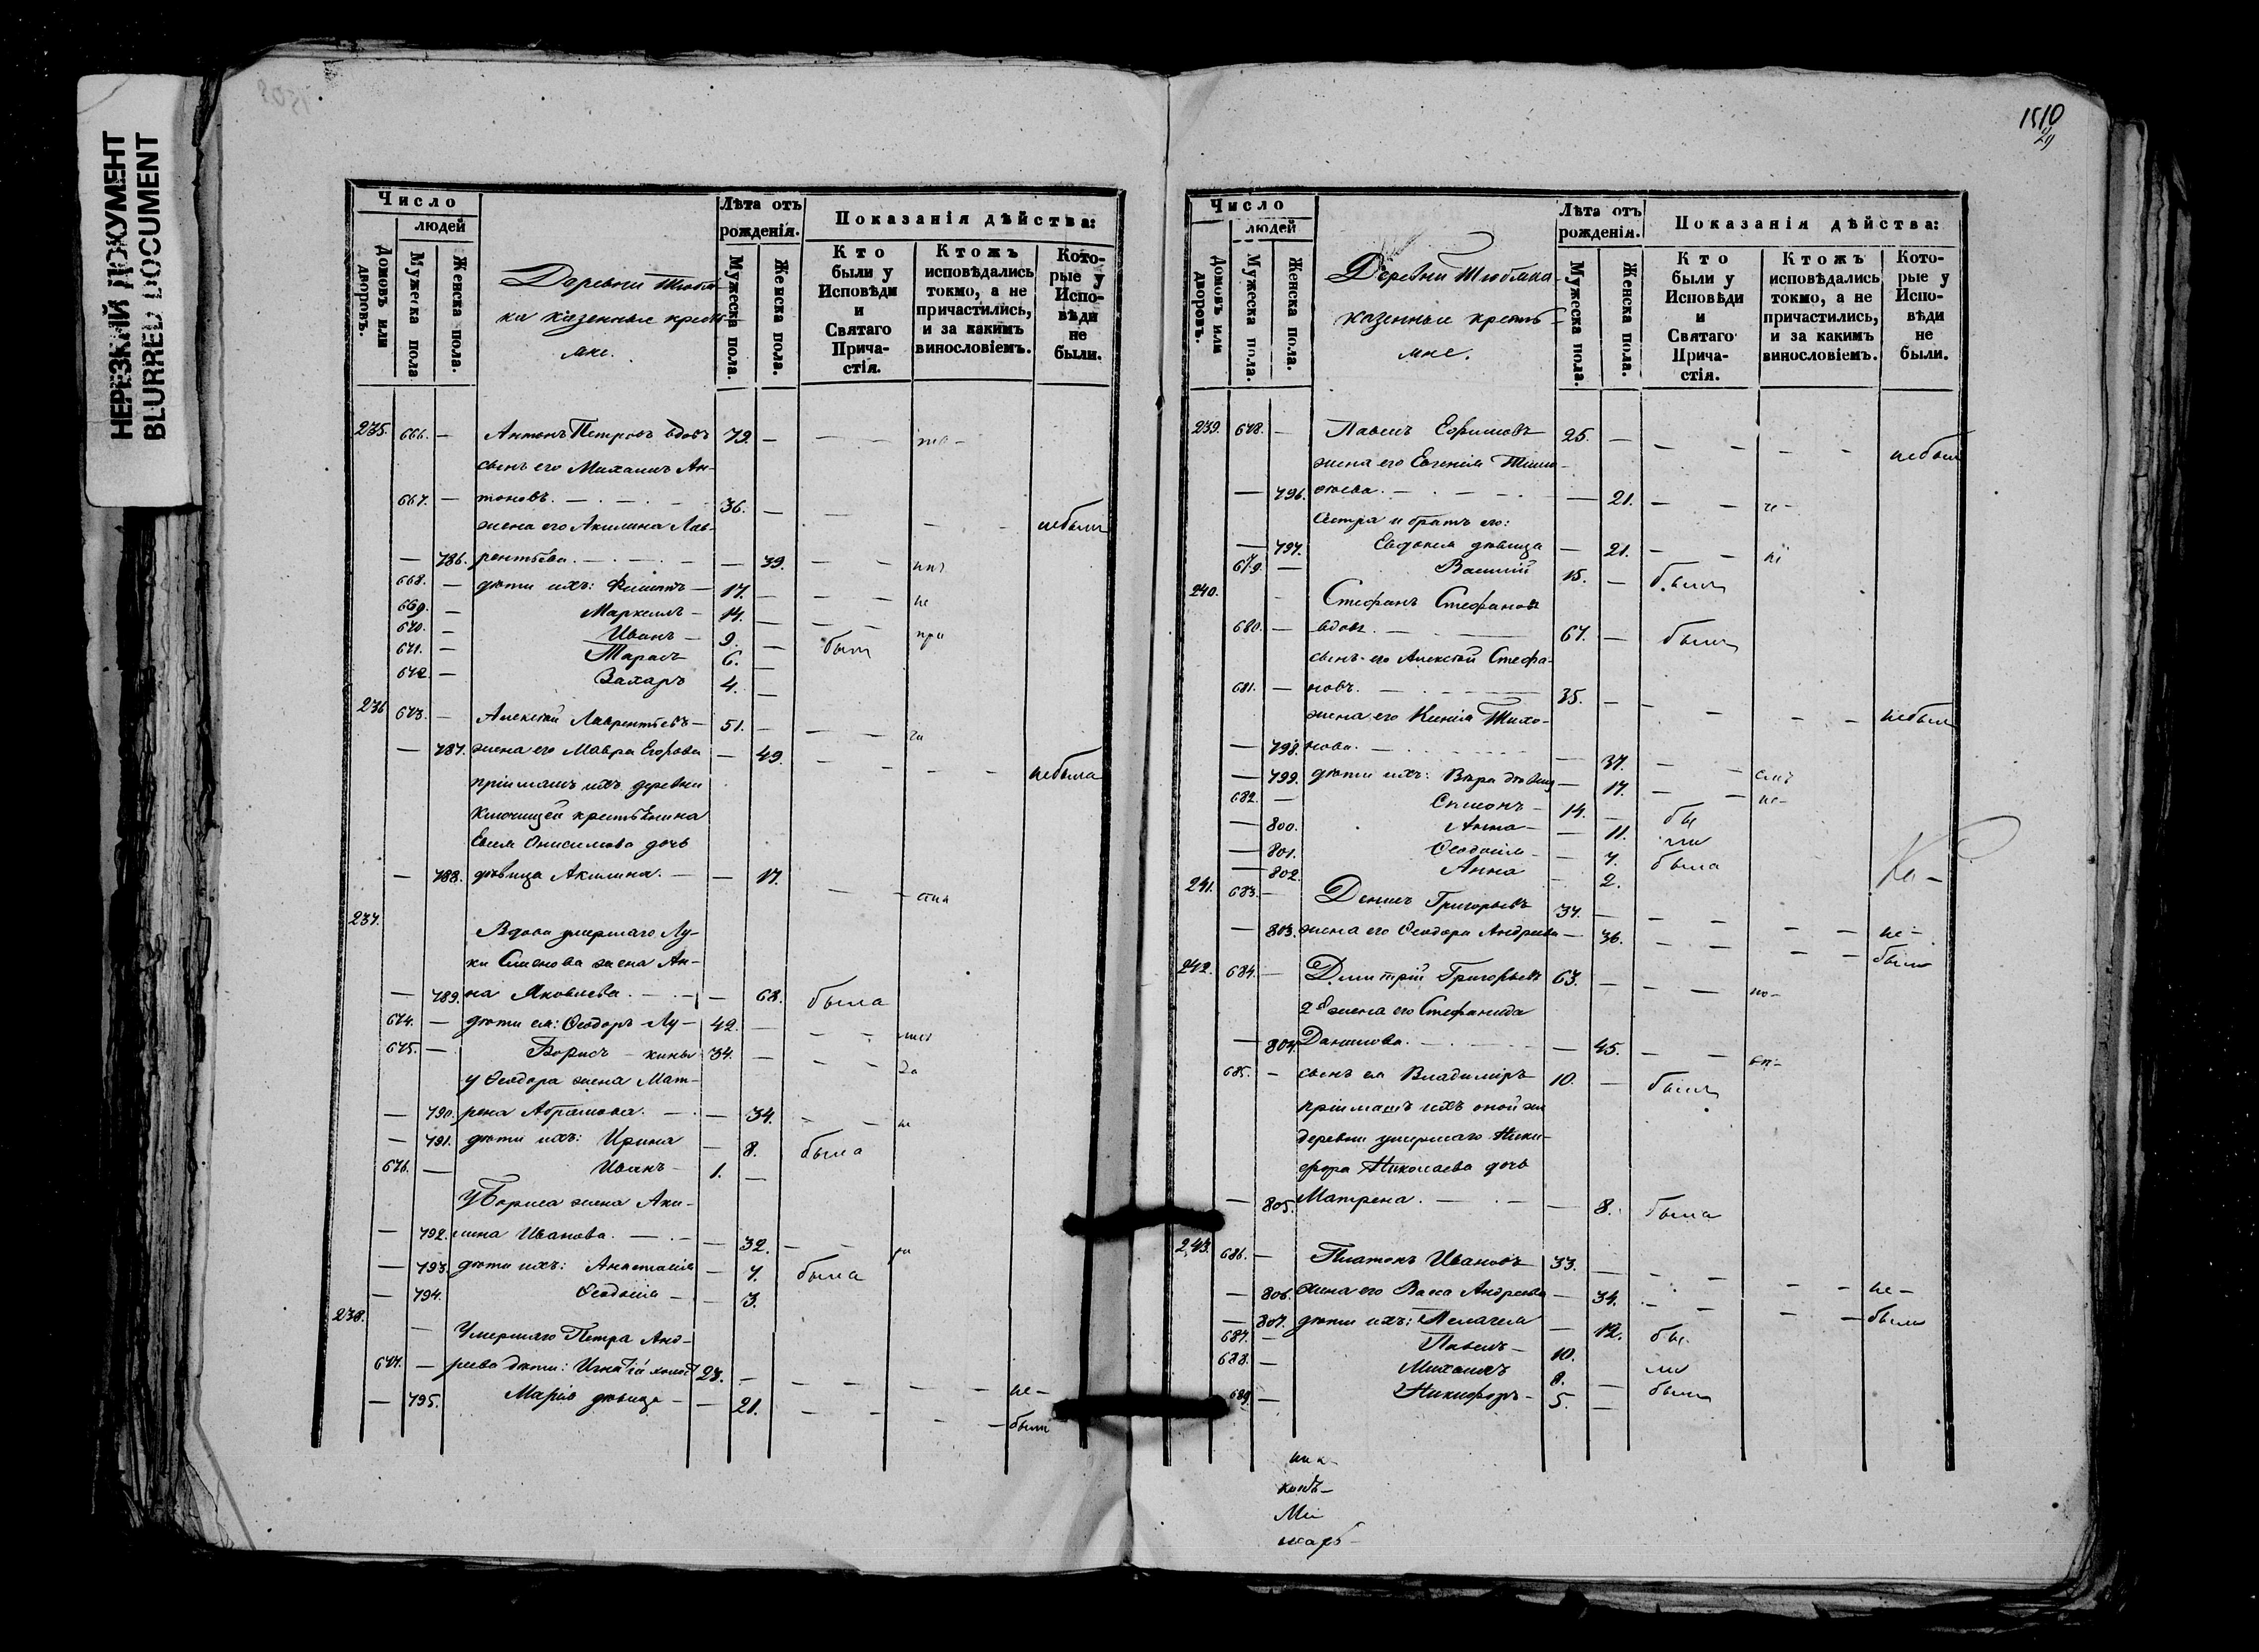 НЕРЕЗКИЙ ДОКУМЕНТ
BLURRED DOCUMENT
Число
людей
Домовъ или дворовъ.
Мужеска пола
Женска пола.
Деревни Тюбяка казенные крестьяне.
Лѣта отъ рожденія.
Мужеска пола.
Женска пола.
Показанія дѣйства:
Кто были у Исповѣди и Святаго Причастія.
Ктожъ исповѣдались токмо, а не причастились, и за какимъ винословіемъ.
Которые у Исповѣди не были.
235. 666. — Антонъ Петровъ вдовъ 72. —
сынъ его Михаилъ Ан-
667. — тоновъ. — 36. — небылъ
жена его Акилина Лав-
— 786. рентьева. — — 39. —
668. — дѣти ихъ: Филиппъ — 17. — не
669. — Маркеллъ — 14. — при
670. — Иванъ — 9. — былъ
671. — Тарасъ 6. —
672. — Захаръ 4. —
236 673. — Алексѣй Лаврентьевъ — 51. —
— 787. жена его Мавра Егорова — 49. небыла
пріимашъ ихъ деревни
Ключищей крестьянина
Онисимова дочь
— 788. дѣвица Акилина. — — 17.
237.
Вдова умершаго Лу-
ки Семенова жена Ан-
— 789. на Яковлева. — 68. была
674. — дѣти ея: Ѳеодоръ Лу- 42. —
675. — Борисъ — кины 34. —
у Ѳеодора жена Мат-
— 790. рена Абрамова. — — 34. не
— 791. дѣти ихъ: Ирина — 8. была
676. — Иванъ — 1. —
У Бориса жена Аки-
— 792. лина Иванова. — — 32.
— 793. дѣти ихъ: Анастасія — 7. была
— 794. Ѳеодосія — — 3.
238.
Умершаго Петра Анд-
677. — реева дѣти: Игнатій холост 23. — не-
— 795. Марія дѣвица — — 21. были
1510
29
Число
людей
Домовъ или дворовъ.
Мужеска пола.
Женска пола.
Деревни Тюбяка
казенные кресть-
яне.
Лѣта отъ рожденія.
Мужеска пола.
Женска пола.
Показанія дѣйства:
Кто были у Исповѣди и Святаго Причастія.
Ктожъ исповѣдались токмо, а не причастились, и за какимъ винословіемъ.
Которые у Исповѣди не были.
239. 678. — Павелъ Ефимовъ 25. — небылъ
жена его Евгенія Тимо-
— 796. ѳеева. — — 21. —
Сестра и братъ его:
— 797. Евдокія дѣвица — 21. —
679. — Василій 15. — былъ
240. Стефанъ Стефановъ
680. — вдовъ. — 67. — былъ
сынъ его Алексѣй Стефа-
681. — новъ. — 35. — небылъ
жена его Ксенія Тихо-
— 798. нова. — — 37. —
— 799. дѣти ихъ: Вѣра дѣвица — 17. —
682. — Симонъ — 14. — бы
— 800. Анна — — 11. ли
— 801. Ѳеодосія — — 7. была
— 802. Анна — 2.
241. 683. — Денисъ Григорьевъ 37. — не-
— 803. жена его Ѳеодора Андреева — 36. были
242. 684. — Дмитрій Григорьевъ 63. —
2я жена его Стефанида
— 804. Данилова. — — 45. —
685. — сынъ ея Владиміръ 10. — былъ
пріимашъ ихъ оной же
деревни умершаго Ники-
фора Николаева дочь
— 805. Матрена. — — 8. была
243. 686. — Платонъ Ивановъ 33. — не-
— 806. жена его Васса Андреева — 34. — были
— 807. дѣти ихъ: Пелагея — 12. бы-
687. — Павелъ — 10. ли
688. — Михаилъ 8. —
689. — Никифоръ — 5. — были